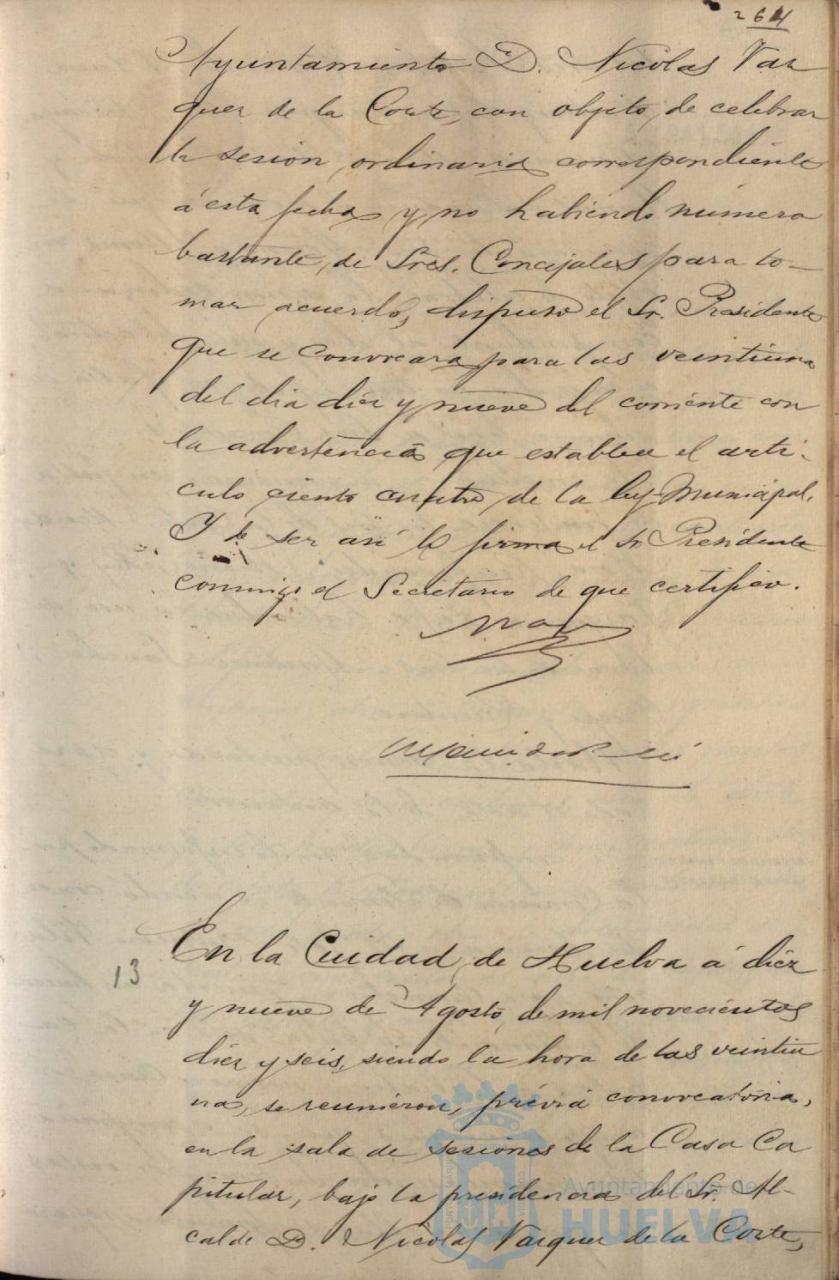 264
Ayuntamiento D. Nicolas Vaz
quez de la Corte, con objeto de celebrar
la sesion ordinaria correspondiente
á esta fecha y no habiendo número
bastante de Sres. Concejales para to-
mar acuerdo, dispuso el Sr. Presidente
que se convocara para las veintiuna
del dia diez y nueve del corriente con
la advertencia que establece el arti-
culo ciento cuatro de la ley Municipal.
Y de ser así lo firma el Sr. Presidente
conmigo el Secretario de que certifico.
13
En la Cuidad de Huelva á diez
y nueve de Agosto de mil novecientos
diez y seis, siendo la hora de las veintiu
na, se reunieron, prévia convocatoria,
en la sala de sesiones de la Casa Ca
pitular, bajo la presidencia del Sr. Al-
calde D. Nicolas Vazquez de la Corte,
Ayuntamiento de
HUELVA